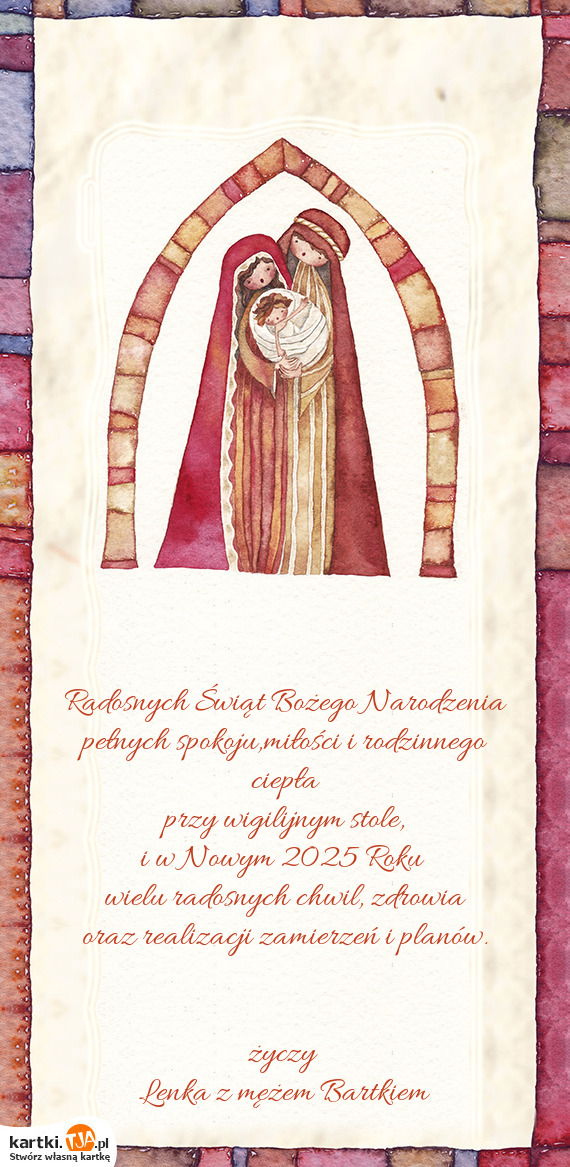 Radosnych Świąt Bożego Narodzenia
pełnych spokoju,miłości i rodzinnego
ciepła
przy wigilijnym stole,
i w Nowym 2025 Roku
wielu radosnych chwil, zdrowia
oraz realizacji zamierzeń i planów.
życzy
Lenka z mężem Bartkiem
kartki.TJA.pl
Stwórz własną kartkę